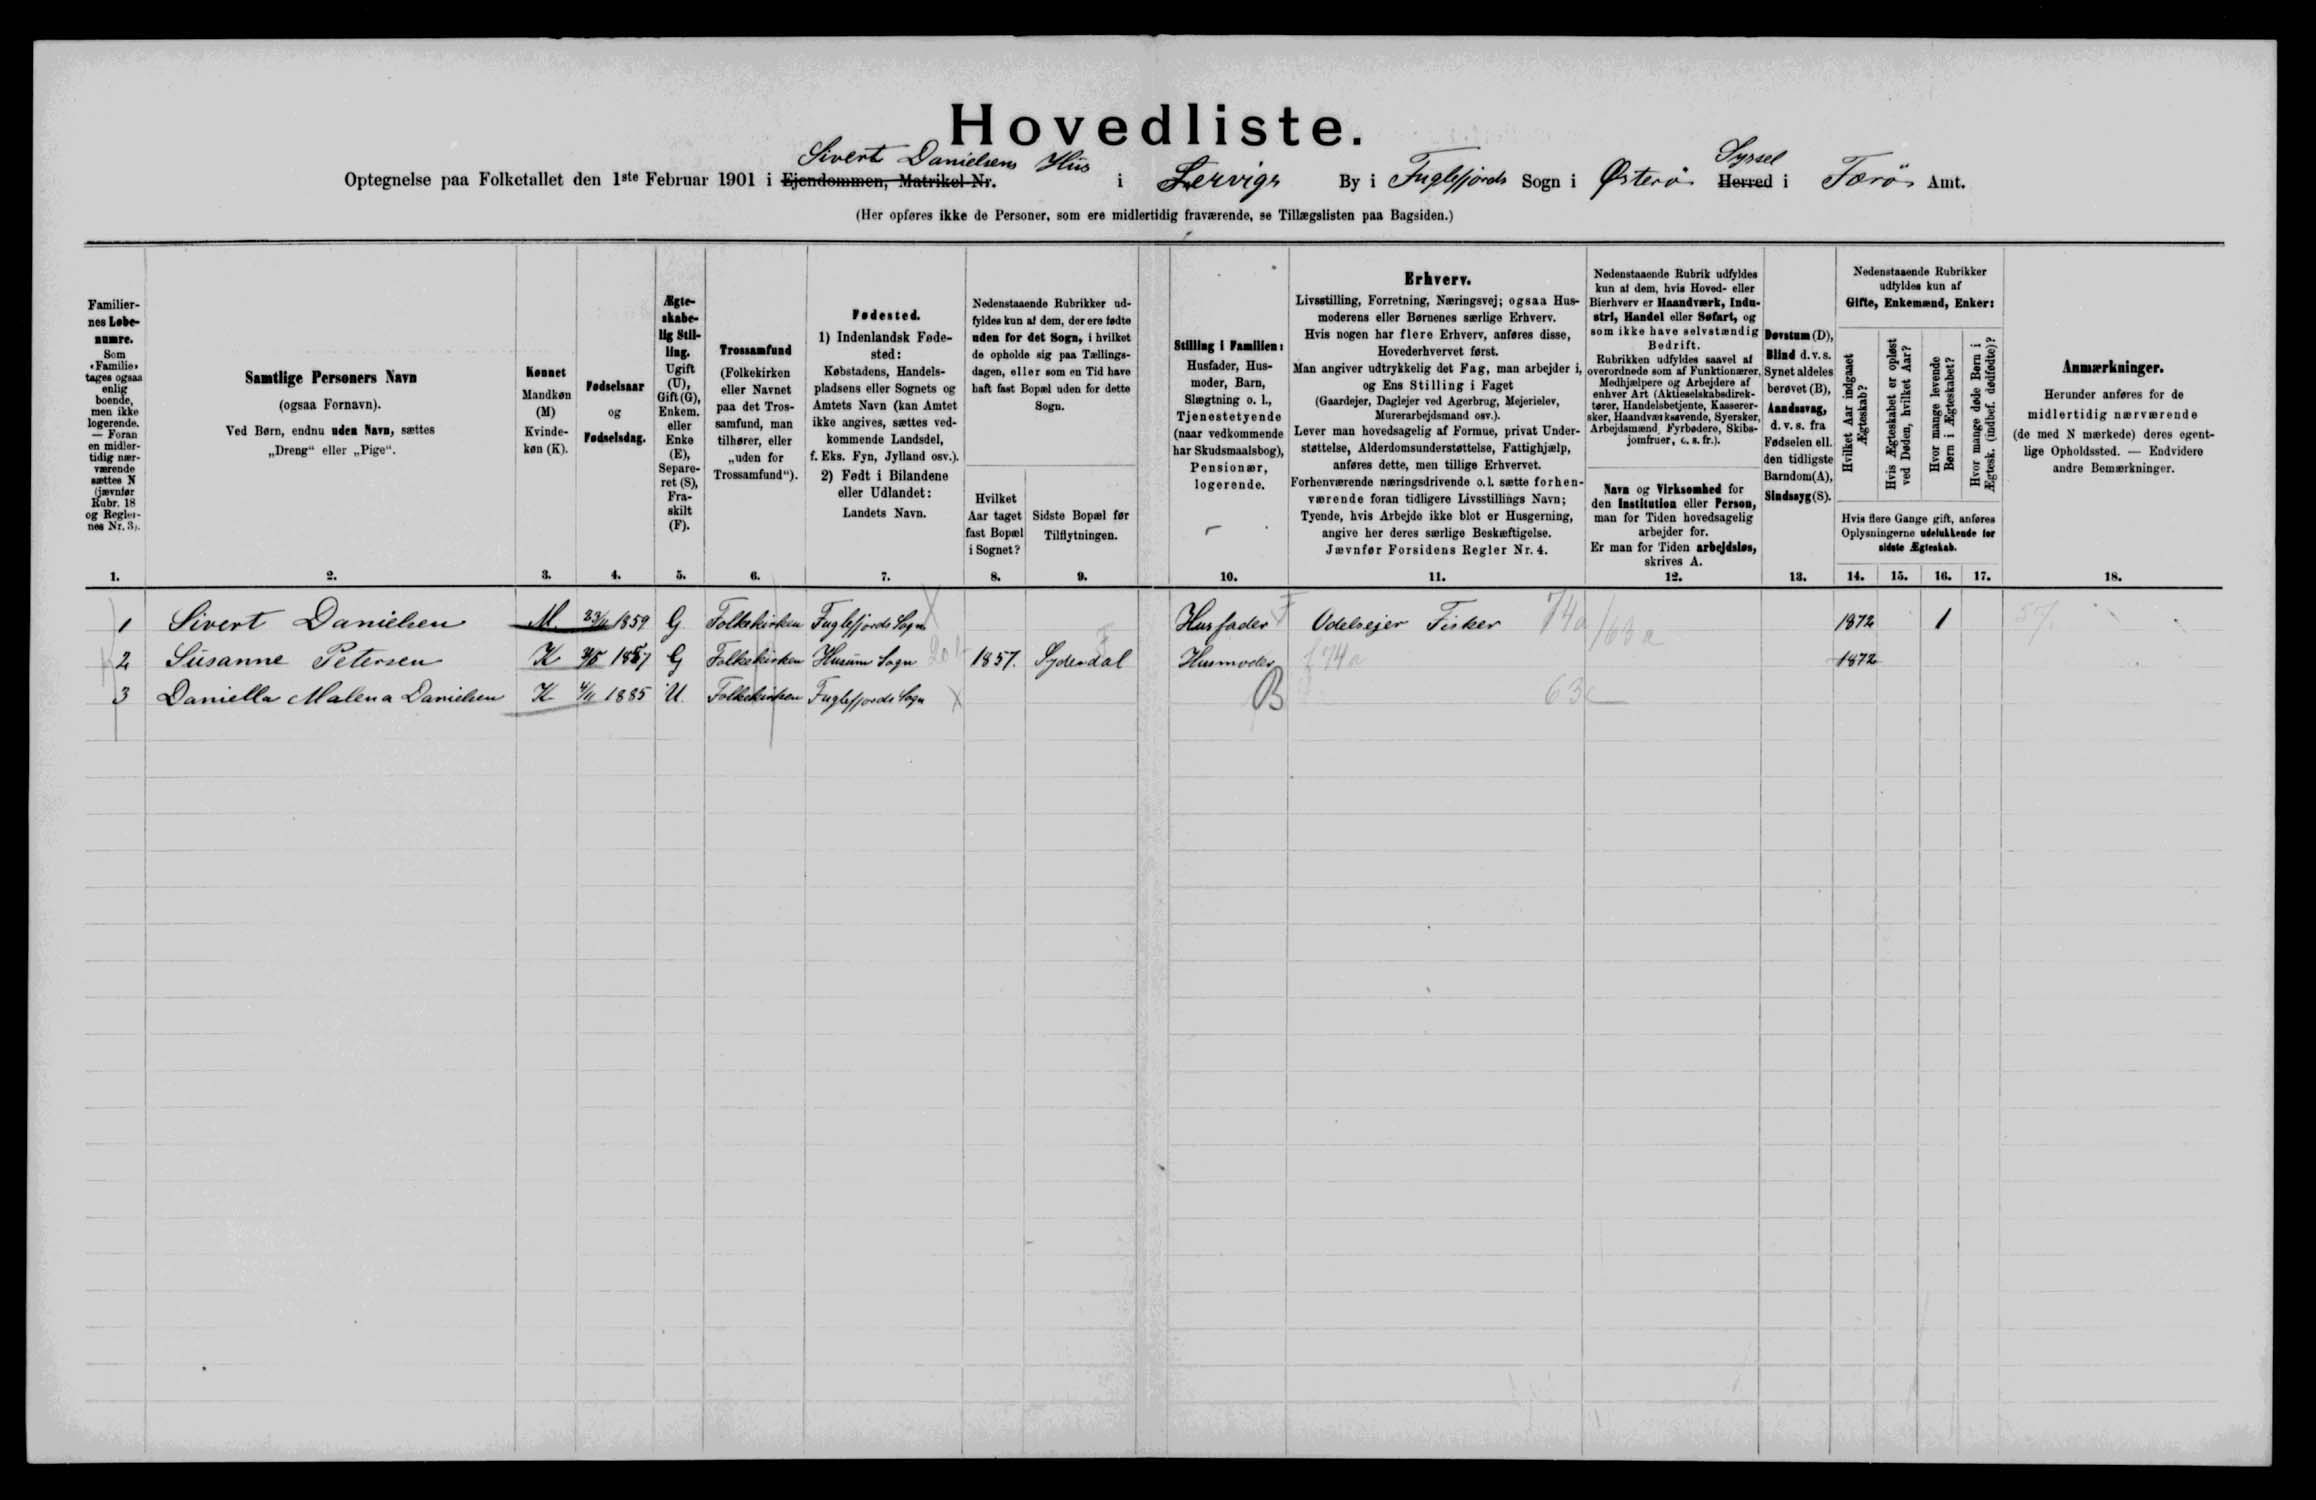 Hovedliste.
Sivert Danielsens Hus
Syssel
Optegnelse paa Folketallet den 1ste Februar 1901 i Ejendommen, Matrikel Nr. i Lervigs By i Fuglefjords Sogn i Østerø Herred i Færø Amt.
(Her opføres ikke de Personer, som ere midlertidig fraværende, se Tillægslisten paa Bagsiden.)
Familier-
nes Løbe-
numre.
Som
«Familie»
tages ogsaa
enlig
boende,
men ikke
logerende.
— Foran
en midler-
tidig nær-
værende
sættes N
(jævnfør
Rubr. 18
og Regler-
nes Nr. 3).
1.
Samtlige Personers Navn
(ogsaa Fornavn).
Ved Børn, endnu uden Navn, sættes
„Dreng“ eller „Pige“.
2.
Kønnet
Mandkøn
(M)
Kvinde-
køn (K).
3.
Fødselsaar
og
Fødselsdag.
4.
Ægte-
skabe-
lig Stil-
ling.
Ugift
(U),
Gift (G),
Enkem.
eller
Enke
(E),
Separe-
ret (S),
Fra-
skilt
(F).
5.
Trossamfund
(Folkekirken
eller Navnet
paa det Tros-
samfund, man
tilhører, eller
„uden for
Trossamfund“).
6.
Fødested.
1) Indenlandsk Føde-
sted:
Købstadens, Handels-
pladsens eller Sognets og
Amtets Navn (kan Amtet
ikke angives, sættes ved-
kommende Landsdel,
f. Eks. Fyn, Jylland osv.).
2) Født i Bilandene
eller Udlandet:
Landets Navn.
7.
Nedenstaaende Rubrikker ud-
fyldes kun af dem, der ere fødte
uden for det Sogn, i hvilket
de opholde sig paa Tællings-
dagen, eller som en Tid have
haft fast Bopæl uden for dette
Sogn.
Hvilket
Aar taget
fast Bopæl
i Sognet?
8.
Sidste Bopæl før
Tilflytningen.
9.
Stilling i Familien:
Husfader, Hus-
moder, Barn,
Slægtning o. l.,
Tjenestetyende
(naar vedkommende
har Skudsmaalsbog),
Pensionær,
logerende.
10.
Erhverv.
Livsstilling, Forretning, Næringsvej; ogsaa Hus-
moderens eller Børnenes særlige Erhverv.
Hvis nogen har flere Erhverv, anføres disse,
Hovederhvervet først.
Man angiver udtrykkelig det Fag, man arbejder i,
og Ens Stilling i Faget
(Gaardejer, Daglejer ved Agerbrug, Mejerielev,
Murerarbejdsmand osv.).
Lever man hovedsagelig af Formue, privat Under-
støttelse, Alderdomsunderstøttelse, Fattighjælp,
anføres dette, men tillige Erhvervet.
Forhenværende næringsdrivende o.l. sætte forhen-
værende foran tidligere Livsstillings Navn;
Tyende, hvis Arbejde ikke blot er Husgerning,
angive her deres særlige Beskæftigelse.
Jævnfør Forsidens Regler Nr. 4.
11.
Nedenstaaende Rubrik udfyldes
kun af dem, hvis Hoved- eller
Bierhverv er Haandværk, Indu-
stri, Handel eller Søfart, og
som ikke have selvstændig
Bedrift.
Rubrikken udfyldes saavel af
overordnede som af Funktionærer,
Medhjælpere og Arbejdere af
enhver Art (Aktieselskabsdirek-
tører, Handelsbetjente, Kasserer-
sker, Haandværkssvende, Syersker,
Arbejdsmænd, Fyrbødere, Skibs-
jomfruer, o. s. fr.).
Navn og Virksomhed for
den Institution eller Person,
man for Tiden hovedsagelig
arbejder for.
Er man for Tiden arbejdsløs,
skrives A.
12.
Døvstum (D),
Blind d. v. s.
Synet aldeles
berøvet (B),
Aandssvag,
d. v. s. fra
Fødselen ell.
den tidligste
Barndom(A),
Sindssyg(S).
13.
Nedenstaaende Rubrikker
udfyldes kun af
Gifte, Enkemænd, Enker:
Hvilket Aar indgaaet
Ægteskab?
Hvis Ægteskabet er opløst
ved Døden, hvilket Aar?
Hvor mange levende
Børn i Ægteskabet?
Hvor mange døde Børn i
Ægtesk. (indbef. dødfødte)?
Hvis flere Gange gift, anføres
Oplysningerne udelukkende for
sidste Ægteskab.
14. 15. 16. 17.
Anmærkninger.
Herunder anføres for de
midlertidig nærværende
(de med N mærkede) deres egent-
lige Opholdssted. — Endvidere
andre Bemærkninger.
18.
1 Sivert Danielsen M. 23/11 1859 G Folkekirken Fuglefjords Sogn Husfader F Odelsejer Fisker 74a 63a 1872 1 57.
2 Susanne Petersen K 1857 G Folkekirken Husum Sogn 1857. Syderdal Husmoder 74a 1872
3 Daniella Malena Danielsen K 4/11 1885 U. Folkekirken Fuglefjords Sogn B 63c